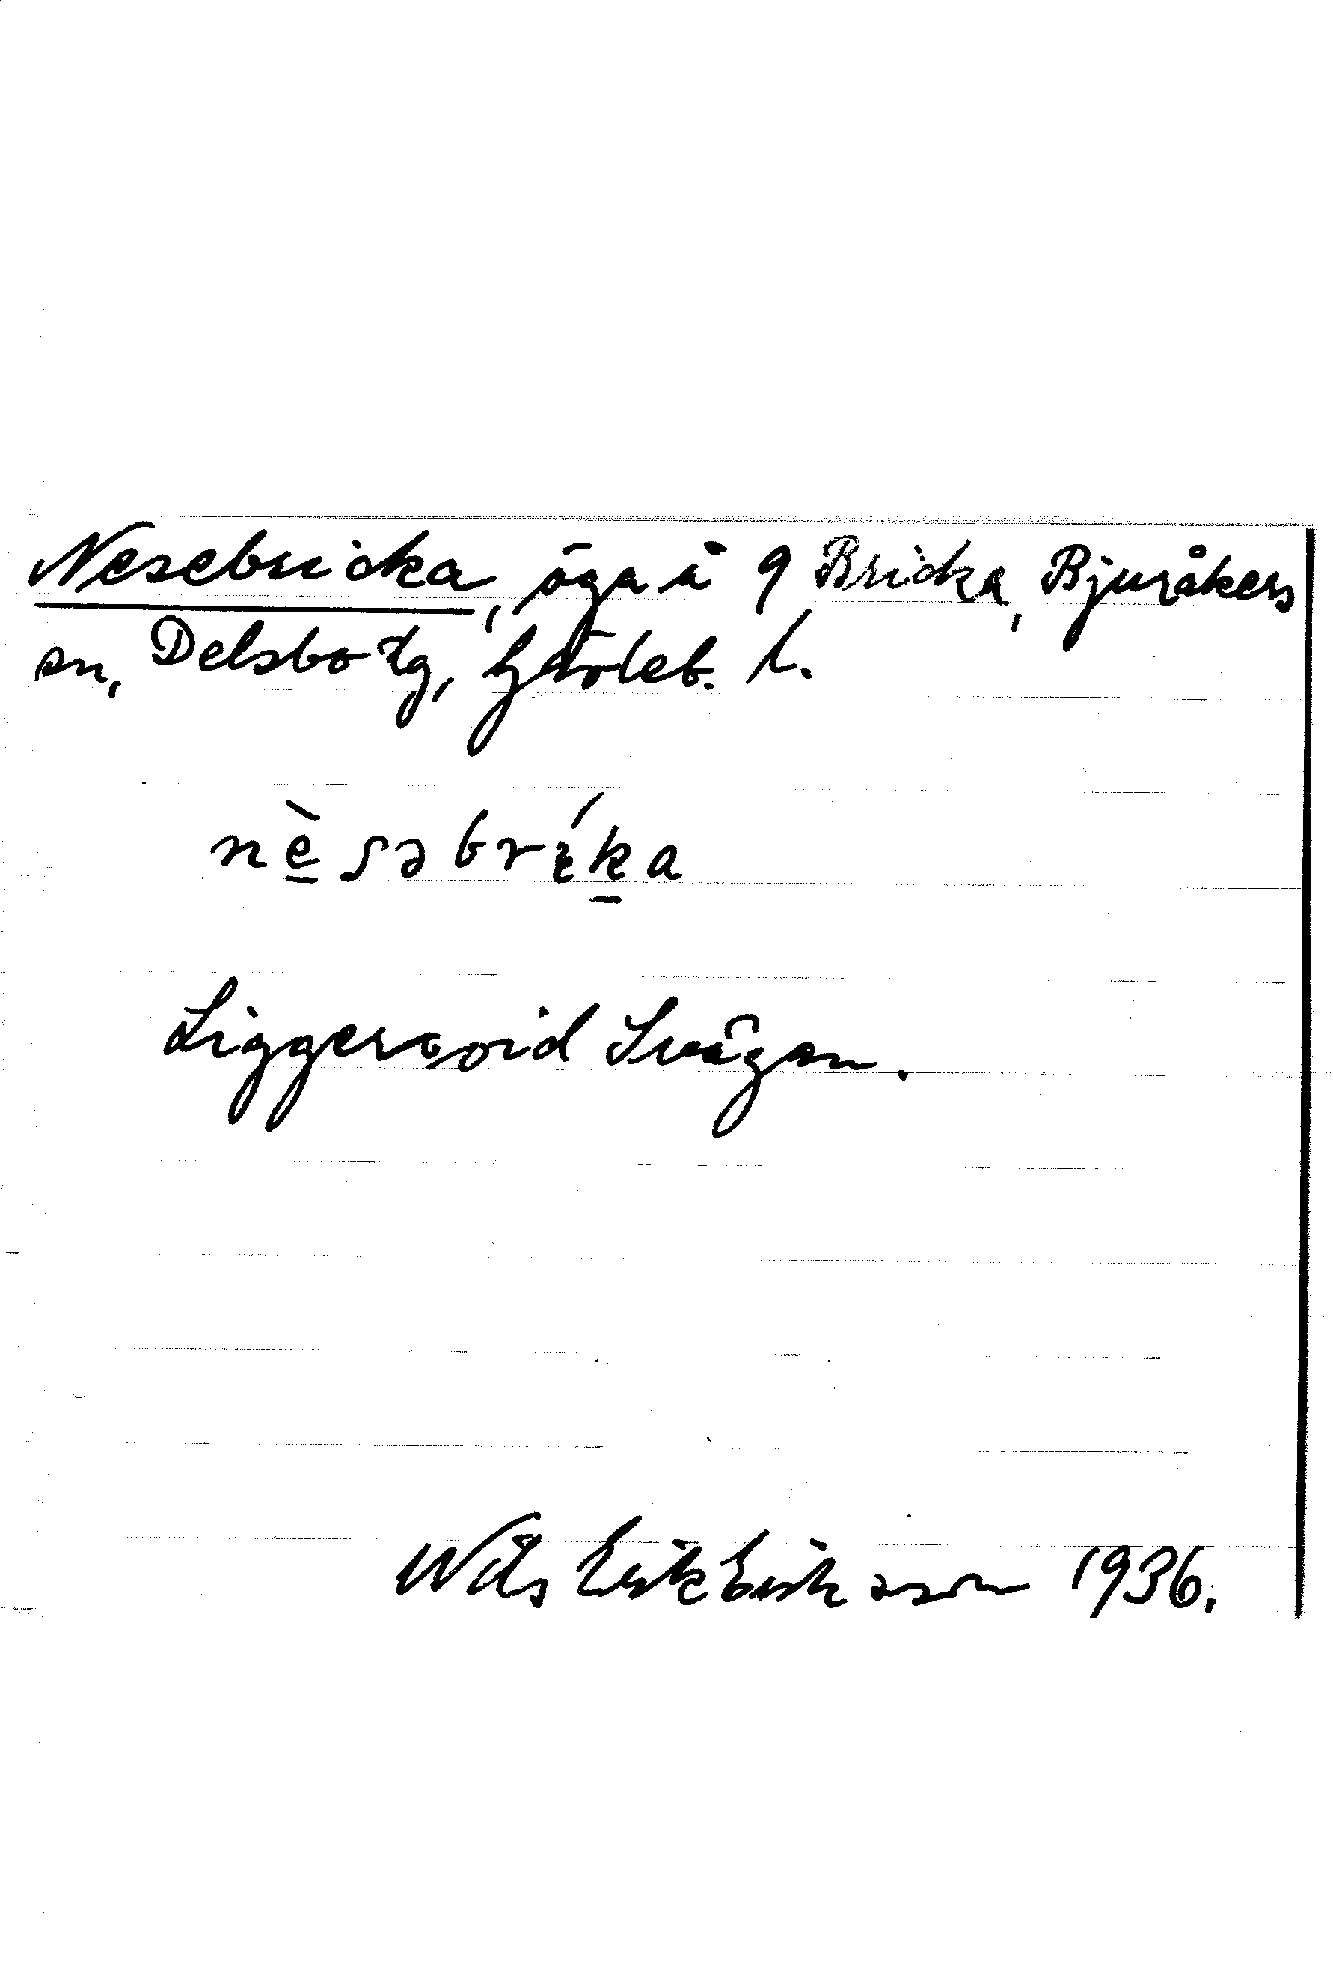 Nesebricka, äga å 9 Bricka, Bjuråkers
sn, Delsbo tg, Gävleb. l.
nèsəbríka
Ligger vid Svågan.
Nils Erik Eriksson 1936.